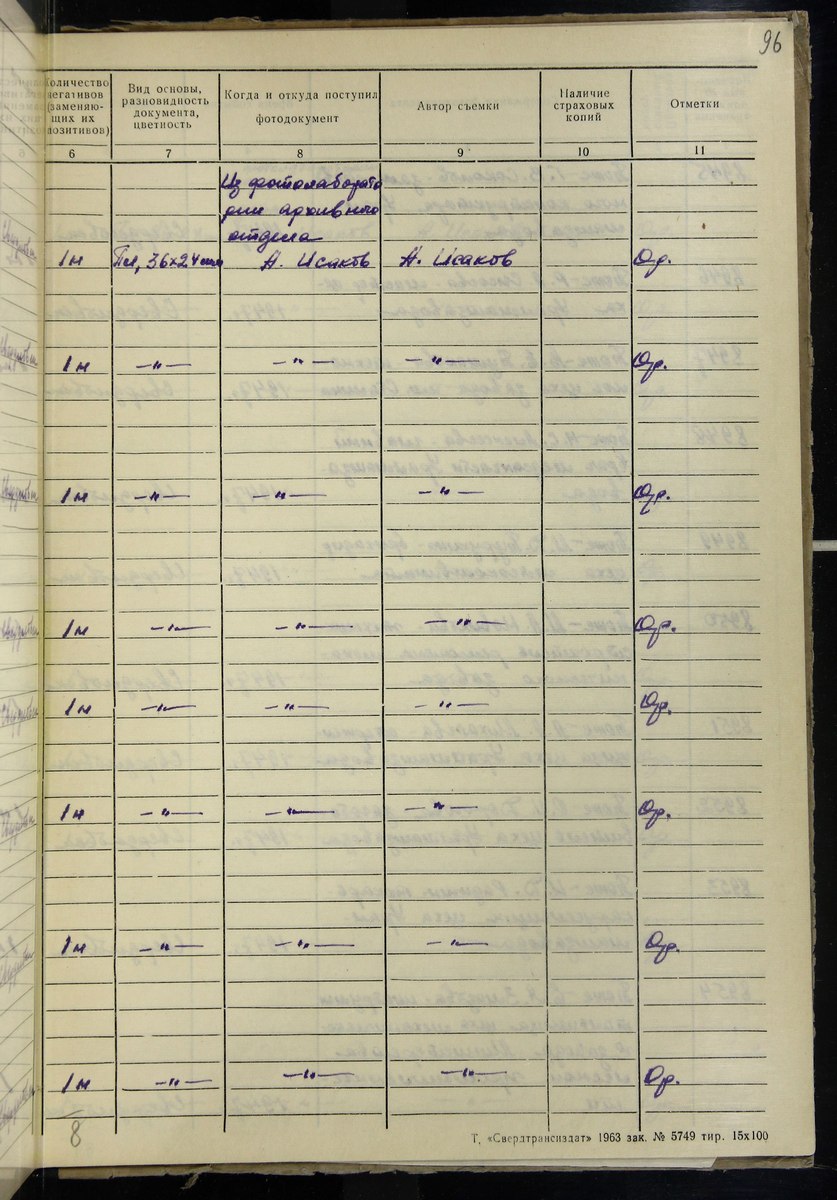 96
Количество негативов (заменяю- щих их позитивов)
Вид основы, разновидность документа, цветность
Когда и откуда поступил фотодокумент
Автор съемки
Наличие страховых копий
Отметки
6 7 8 9 10 11
Из фотолаборато
рии архивного
отдела
1 н Пл, 36х24 мм А. Исаков А. Исаков Ор.
1 н —"— —"— —"— Ор.
1 н —"— —"— —"— Ор.
1 н —"— —"— —"— Ор.
1 н —"— —"— —"— Ор.
1 н —"— —"— —"— Ор.
1 н —"— —"— —"— Ор.
1 н —"— —"— —"— Ор.
8
Т, «Свердтрансиздат» 1963 зак. № 5749 тир. 15х100